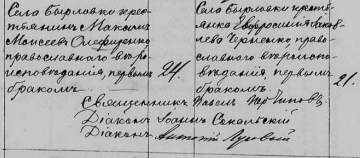 Село Бырловки кре-
стьянинъ Максимъ
Моисеевъ Олефиренко
православнаго вѣро-
исповѣданія, первымъ
бракомъ.
24.
Село Бырловки кресть-
янка Евфросинія Яков-
лева Черненко, право-
славнаго вѣроиспо-
вѣданія, первымъ
бракомъ.
21.
Священникъ Павелъ
Діаконъ Іоаннъ Сокольскій
Діаконъ Антоній